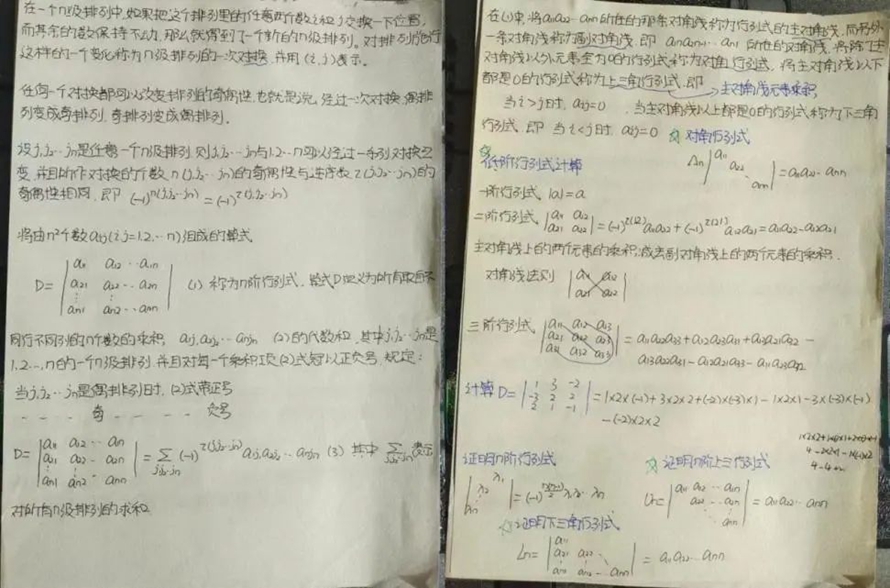 在一个n级排列中,如果把这个排列里的任意两个数i和j交换一下位置,
而其余的数保持不动,那么就得到了一个新的n级排列。对排列施行
这样的一个变化称为n级排列的一次对换,并用(i,j)表示。
任何一个对换都可以改变排列的奇偶性,也就是说,经过一次对换,偶排
列变成奇排列,奇排列变成偶排列。
设j₁j₂…jn是任意一个n级排列,则j₁j₂…jn与1,2…n可以经过一系列对换互
变,并且所作对换的个数n(j₁j₂…jn)的奇偶性与逆序数τ(j₁j₂…jn)的
奇偶性相同,即 (-1)^n(j₁j₂…jn) = (-1)^τ(j₁j₂…jn)
将由n²个数aij(i,j=1,2,…n)组成的算式
D= | a11 a12 … a1n
a21 a22 … a2n
⋮
an1 an2 … ann | (1) 称为n阶行列式,
同行不同列的n个数的乘积, a1j₁a2j₂…anjn (2)的代数和,其中j₁j₂…jn是
1,2…,n的一个n级排列,并且对每一个乘积项(2)式冠以正负号,规定:
当j₁j₂…jn是偶排列时,(2)式带正号
- - - - 奇 - - - - 负号
D= | a11 a12 … a1n
a21 a22 … a2n
⋮
an1 an2 … ann | = Σ j₁j₂…jn (-1)^τ(j₁j₂…jn) a1j₁a2j₂…anjn (3) 其中 Σ j₁j₂…jn 表示
对所有n级排列的求和
在(1)中,将a11a22…ann所在的那条对角线称为行列式的主对角线,而另外
一条对角线称为副对角线,即 a1n … an1所在的对角线,将除了主
对角线以外元素全为0的行列式称为对角行列式,将主对角线以下
都是0的行列式称为上三角行列式,即 → 主对角线元素乘积
当i>j时,aij=0 . 当主对角线以上都是0的行列式称为下三角
行列式,即当i<j时,aij=0 ☆ 对角行列式
☆低阶行列式计算 Λn | a11
a22
⋱
ann | = a11a22…ann
一阶行列式, |a|=a
二阶行列式, | a11 a12
a21 a22 | = (-1)^τ(12) a11a22 + (-1)^τ(21) a12a21 = a11a22-a12a21
主对角线上的两个元素的乘积,减去副对角线上的两个元素的乘积.
对角线法则 | a11 a12
a21 a22 |
三阶行列式 | a11 a12 a13
a21 a22 a23
a31 a32 a33 | = a11a22a33+a12a23a31+a13a21a32 -
a13a22a31-a12a21a33-a11a23a32
计算D= | 1 3 -2
-3 2 2
2 1 -1 | = 1×2×(-1)+3×2×2+(-2)×(-3)×1-1×2×1-3×(-3)×(-1)
-(-2)×2×2
证明n阶行列式 ☆证明n阶上三角行列式
| λ1
λ2
λn | = (-1)^n(n-1)/2 λ1λ2…λn Un= | a11 a12 … a1n
a22 … a2n
⋱
ann | = a11a22…ann
☆证明下三角行列式
Ln= | a11
a21 a22
⋮ ⋱
an1 an2 … ann | = a11a22…ann